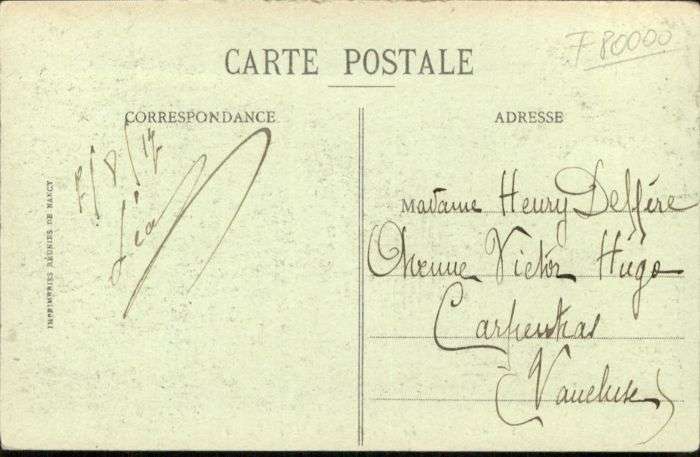 F80000
CARTE POSTALE
CORRESPONDANCE
ADRESSE
IMPRIMERIES RÉUNIES DE NANCY
Léo
Madame Henry Deffère
Avenue Victor Hugo
Carpentras
(Vaucluse)